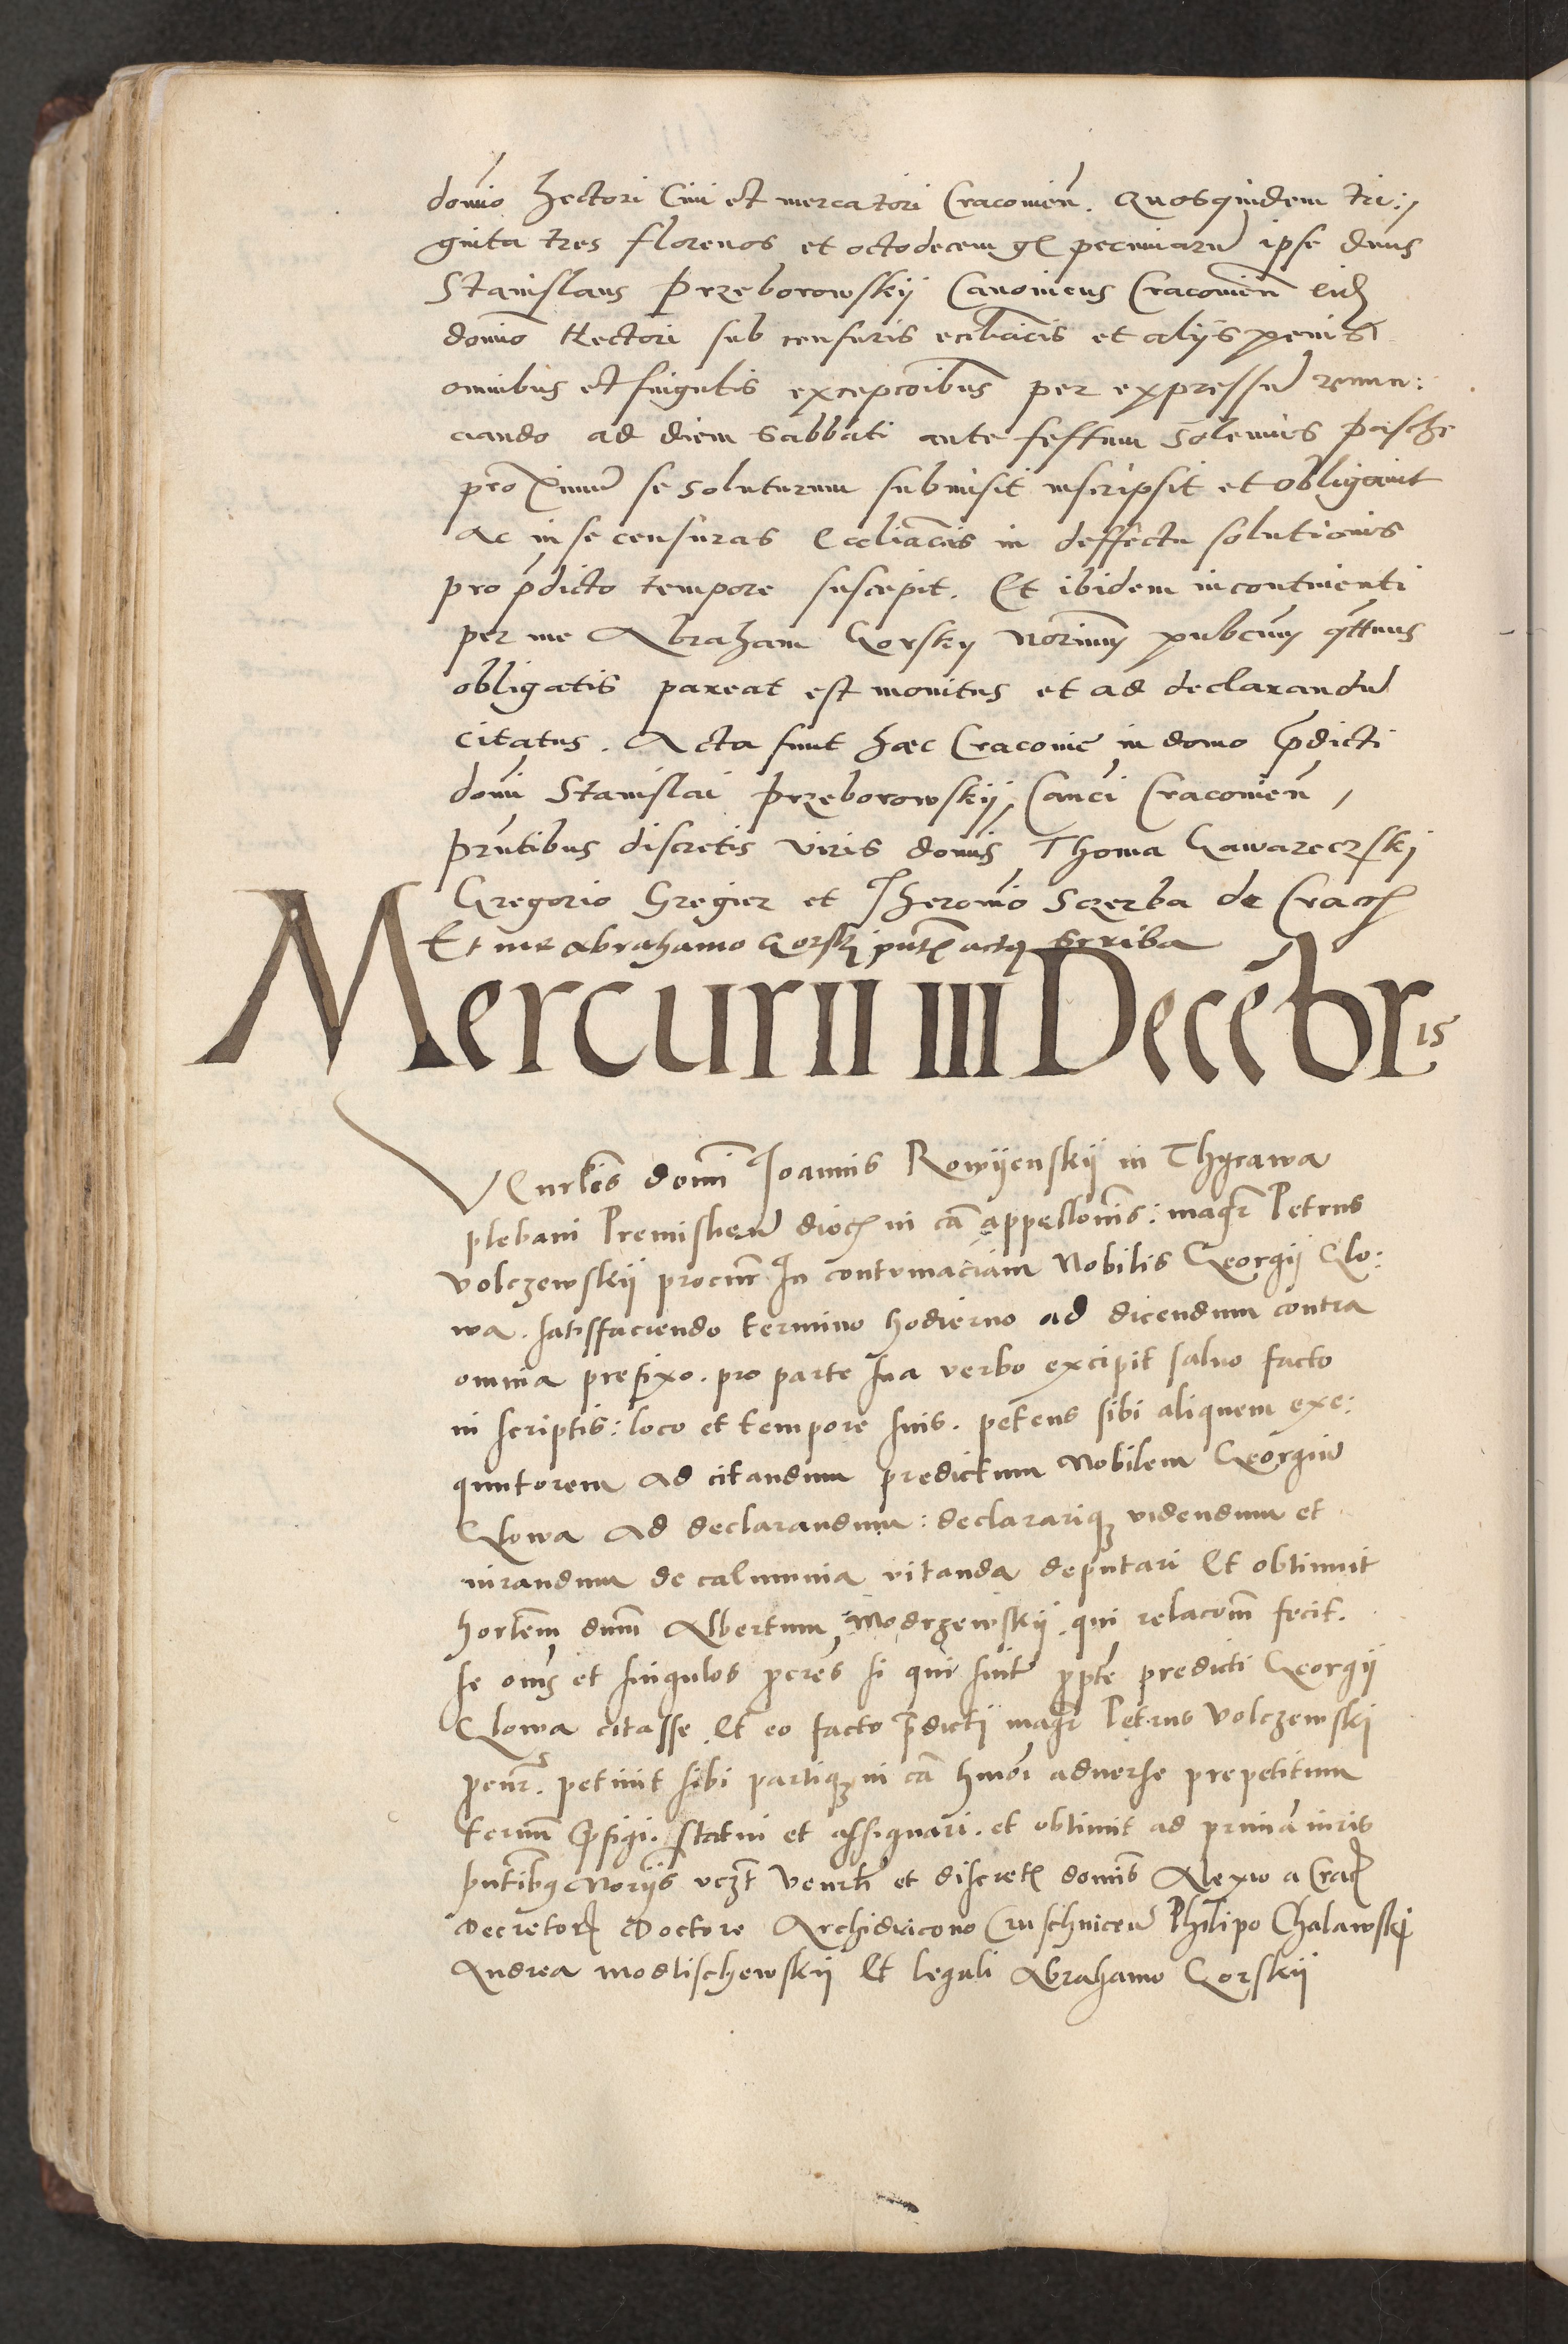 domino Hectori Civi et mercatori Cracovien̄. Quosquidem tri:,
ginta tres florenos et octodecem gr̄ pecuniarū ipse dn̄us
Stanislaus Przeborowskij Canonicus Cracovien̄ eid̄
domīo Hectori sub censuris ecclīacis et alijs penis
omnibus et singulis excepcōibus per expressū renun:
ciando ad diem Sabbati ante festum Solemnis Pasche
proximū se soluturum submisit inscripsit et obligavit
Ac in se censuras Eccliācis in deffectu solutionis
pro p̄dicto tempore suscepit. Et ibidem incontinenti
per me Abraham Gorskij Norium pubcum q̄ttnus
obligatis pareat est monitus et ad declarandū
citatus. Acta sunt haec Cracovie in domo p̄dicti
domī Stanislai Przeborowskij, Canci Cracovien̄,
Prn̄tibus discretis viris domīs Thoma Gawareczski
Gregorio Gregier et Iheronīo Sczerba de Craco
Et me Abrahamo Gorskj pn̄t actq scriba
Mercurii III Decēbris
Venrlis domī Joannis Rowijenskij in Thyrawa
plebani Premislien̄ dioc in cā appellonis: magr̄ Petrus
Volczewskij procur In contumaciam Nobilis Georgij Glo:
wa. satisfaciendo termino hodierno ad dicendum contra
omnia prefixo. pro parte sua verbo excipit salvo facto
in scriptis: loco et tempore suis. petens sibi aliquem exe:
quutorem ad citandum predictum Nobilem Georgiū
Glowa ad declarandum: declararique videndum et
iurandum de calumnia vitanda deputari Et obtinuit
horlem dnm̄ Albertum Modrzewskij. qui relacōm fecit.
se om̄s et singulos p̄cres si qui sunt p̄pte predicti Georgij
Glowa citasse. Et eo facto p̄dicti magr̄ Petrus Volczewskj
p̄cur. petivit sibi partique in cā hmōi adverse prepetitum
termī p̄figi. statui et assignari. et obtinuit ad primā iuris
pn̄tibus Norijs vczt Venrli et discret domīs Alexio a Crac
Decretor Doctore Archidiacono Cruschnicen̄ Philipo Chalawskj
Andrea Modlischewskij Et legali Abrahamo Gorskij